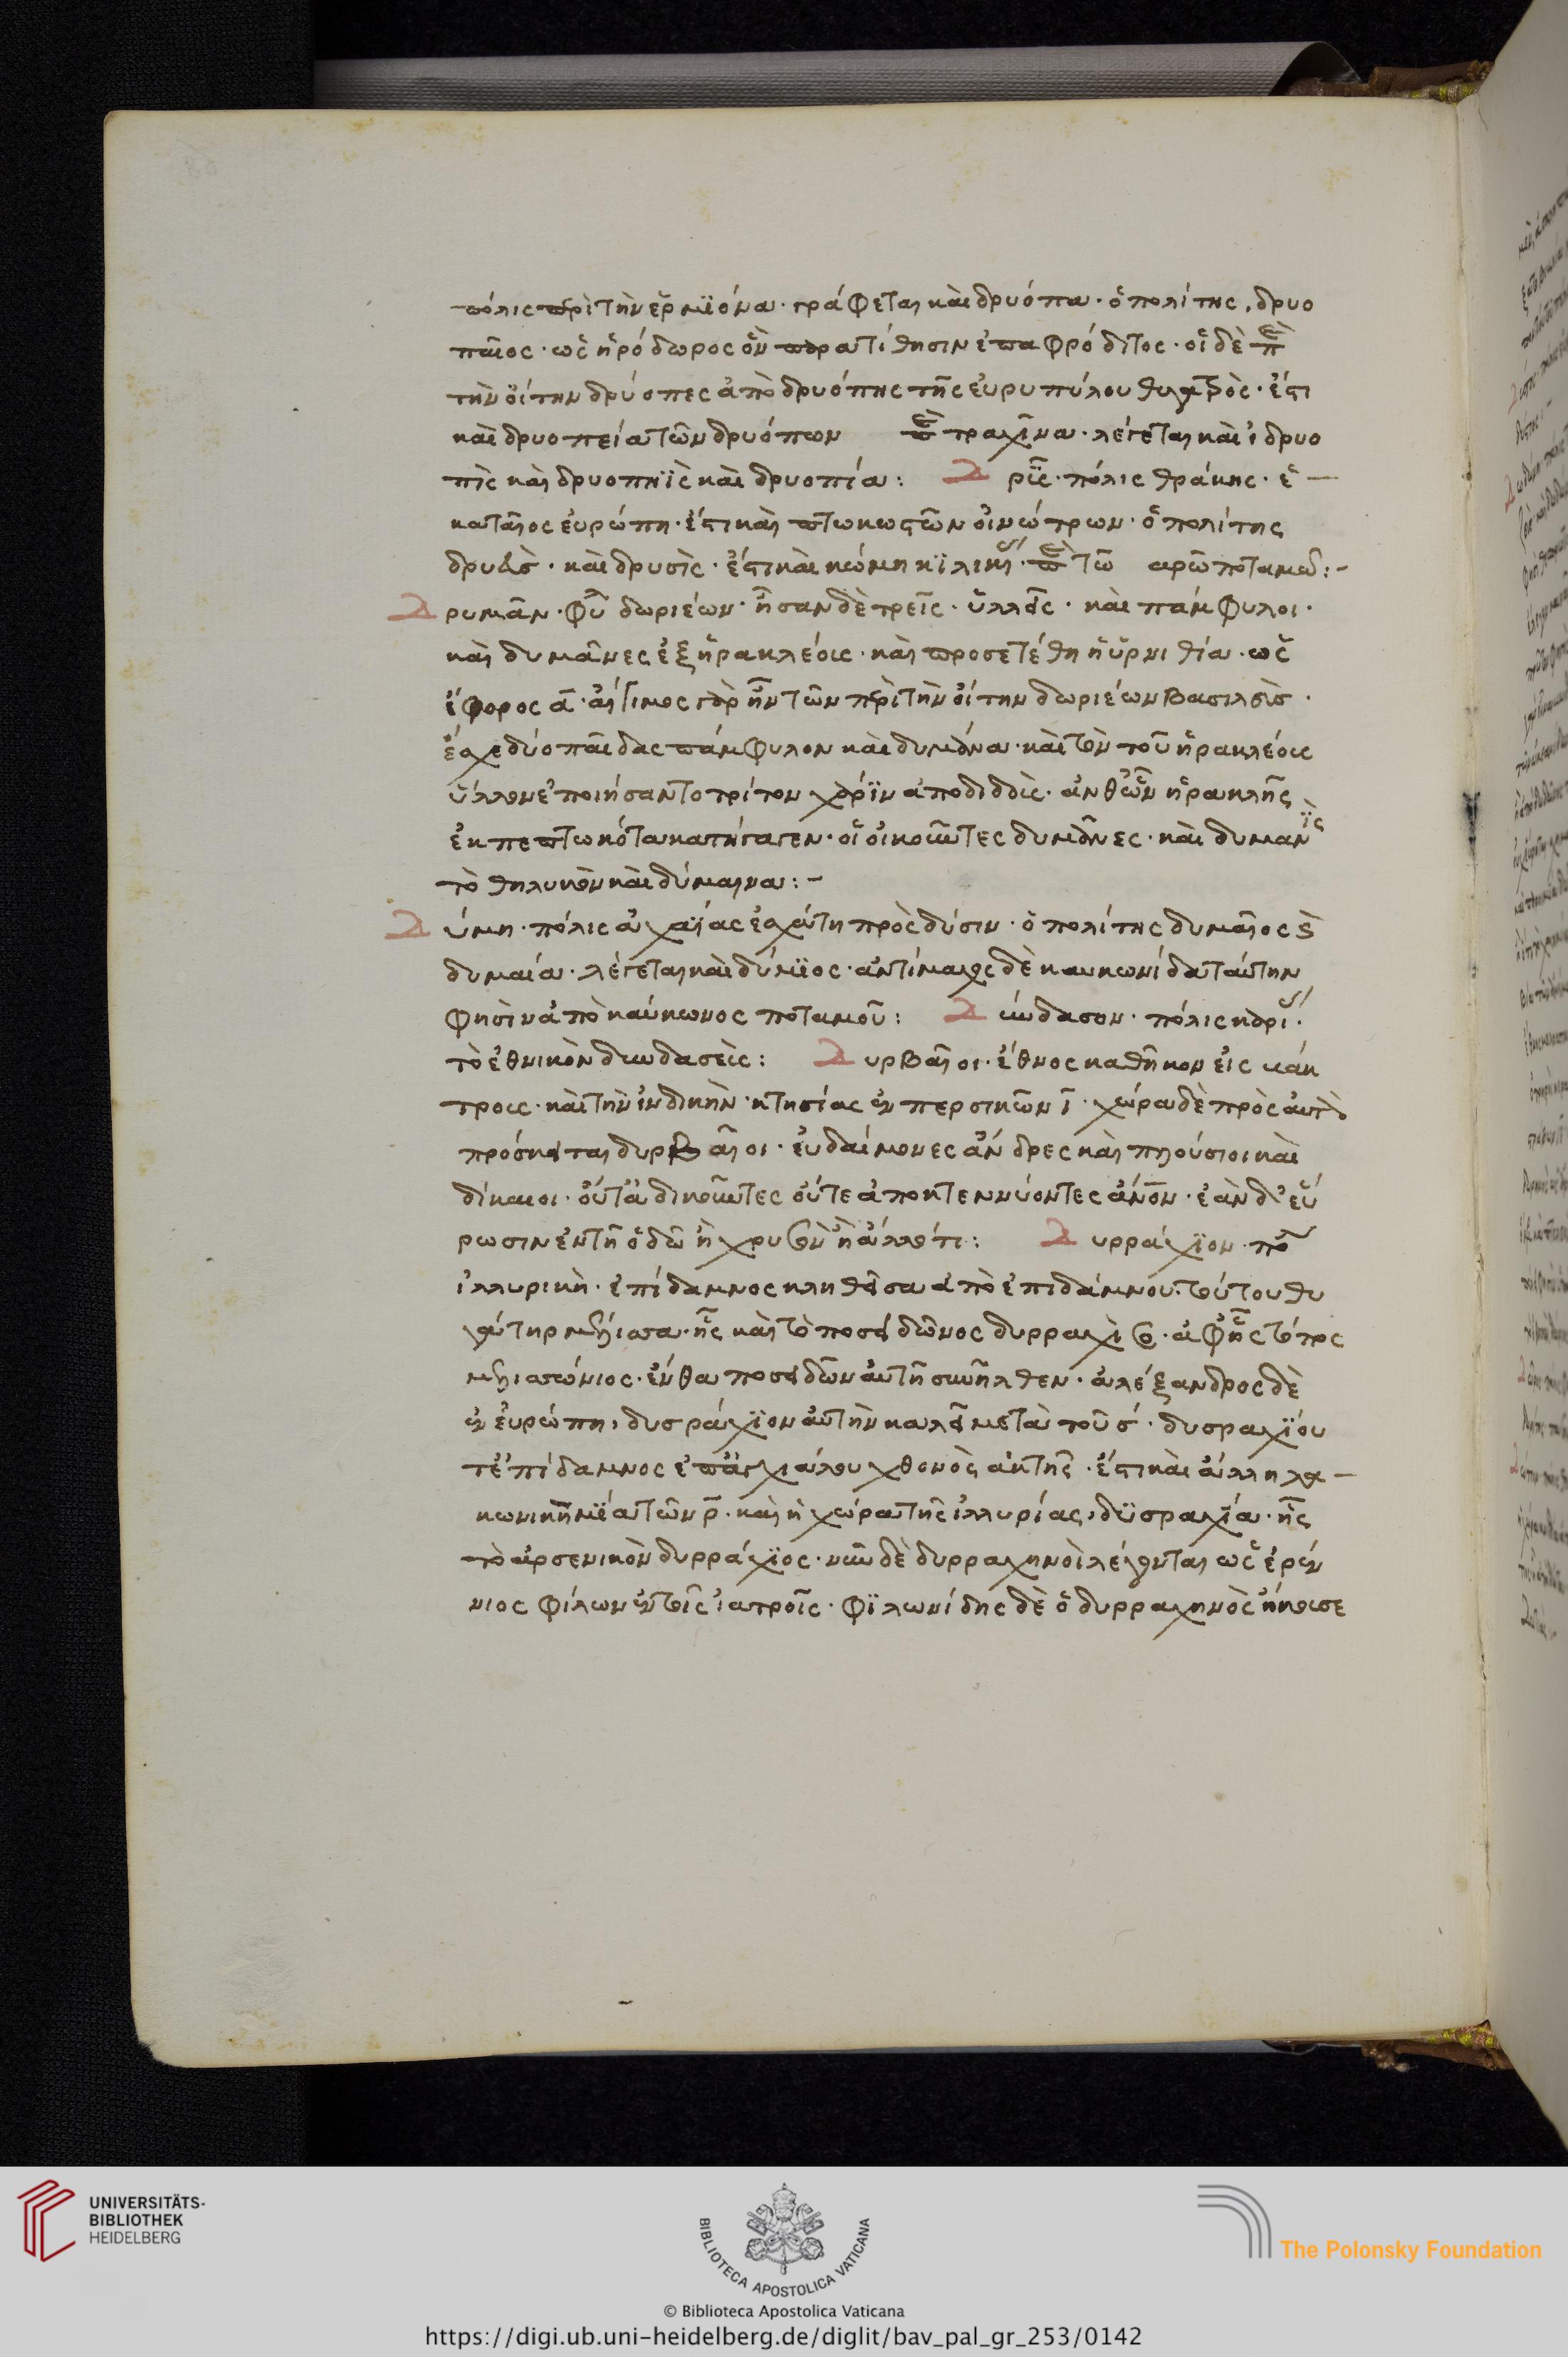 πόλις περὶ τὴν ἑρμϊόνα · γράφεται καὶ δρυόπα · ὁ πολίτης, δρυο
παῖος · ὡς ἡρόδωρος ὃν παρατίθησιν ἐπαφρόδιτος · οἱ δὲ περὶ
τὴν οἴτην δρύοπες ἀπὸ δρυόπης τῆς εὐρυπύλου θυγατρὸς · ἔστι
καὶ δρυοπεία τῶν δρυόπων περὶ τραχῖνα · λέγεται καὶ ἰ δρυο
πὶς καὶ δρυοπηῒς καὶ δρυοπία : Δρῖς · πόλις θράκης · ἑ
καταῖος εὐρώπη · ἔστι καὶ οἰνώτρων · ὁ πολίτης
δρυεὺς · καὶ δρυσὶς · ἔστι καὶ κώμη κϊλικί περὶ τῶ αρῶ ποταμῶ :-
Δρυμᾶν · φυ δωριέων · ἦσαν δὲ τρεῖς · ὑλλεῖς · καὶ πάμφυλοι ·
καὶ δυμᾶνες ἐξ ἡρακλέους · καὶ προσετέθη ἡ ὑρνιθία · ὡς
ἔφορος α · αἰγιμος γὰρ ἦν τῶν περὶ τὴν οἴτην δωριέων βασιλεὺς ·
ἔσχε δύο παῖδας πάμφυλον καὶ δυμᾶνα · καὶ τὸν τοῦ ἡρακλέους
ὕλλον ἐποιήσαντο τρίτον χάρϊν ἀποδιδοὺς · ἀνθ ὧν ἡρακλῆς
ἐκπεπτωκότα κατήγαγεν · οἱ οἰκοῦντες δυμᾶνες · καὶ δυμανῒς
τὸ θηλυκὸν καὶ δύμαινα :-
Δύμη · πόλις ἀχαΐας ἐσχάτη πρὸς δύσιν · ὁ πολίτης δυμαῖος καὶ
δυμαία · λέγεται καὶ δύμϊος · ἀντίμαχος δὲ καυκωνίδα ταύτην
φησὶν ἀπὸ καύκωνος ποταμοῦ : Δύνδασον · πόλις καρί ·
τὸ ἐθνικὸν δυνδασεὺς : Δυρβαῖοι · ἔθνος καθῆκον εἰς κάκ
τρους · καὶ τὴν ἰνδικὴν · κτησίας ἐν περσικῶν ι · χώρα δὲ πρὸς αὐτὸ
πρόσκειται δυρβαῖοι · εὐδαίμονες ἄνδρες καὶ πλούσιοι καὶ
δίκαιοι · οὔτ ἀδικοῦντες οὔτε ἀποκτεννύοντες ἄνον · ἐὰν δ εὕ
ρωσιν ἐν τῆ ὁδῶ ἢ χρυσὸν ἢ ἄλλο τι : Δυρράχϊον · πο
ἰλλυρικὴ · ἐπίδαμνος κληθεῖσα ἀπὸ ἐπιδάμνου · τούτου θυ
γάτηρ μελίσσα · ἧς καὶ τὸ ποσειδῶνος δυρράχιος · ἀφ ἧς τόπος
μελισσώνιος · ἔνθα ποσειδῶν αὐτῆ συνῆλθεν · ἀλέξανδρος δὲ
ἐν εὐρώπη, δυσράχϊον αὐτὴν καλεῖ μετὰ τοῦ σ · δυσραχϊου
τ ἐπίδαμνος ἐπ ἀγχιάλου χθονὸς ἀκτῆς · ἔστι καὶ ἄλλη λα
κωνικὴ μΐα τῶν ρ · καὶ ἡ χώρα τῆς ἰλλυρίας, δϋσραχία · ἧς
τὸ ἀρσενικὸν δυρράχϊος · νῦν δὲ δυρραχηνοὶ λέγονται ὡς ἐρέν
νιος φίλων ἐν τοῖς ἰατροῖς · φϊλωνίδης δὲ ὁ δυρραχηνὸς ἤκουσε
UNIVERSITÄTS-
BIBLIOTHEK
HEIDELBERG
BIBLIOTECA APOSTOLICA VATICANA
The Polonsky Foundation
© Biblioteca Apostolica Vaticana
https://digi.ub.uni-heidelberg.de/diglit/bav_pal_gr_253/0142